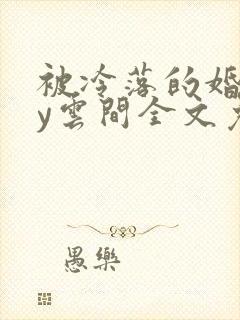 被冷落的婚
y雲間全文
愚樂